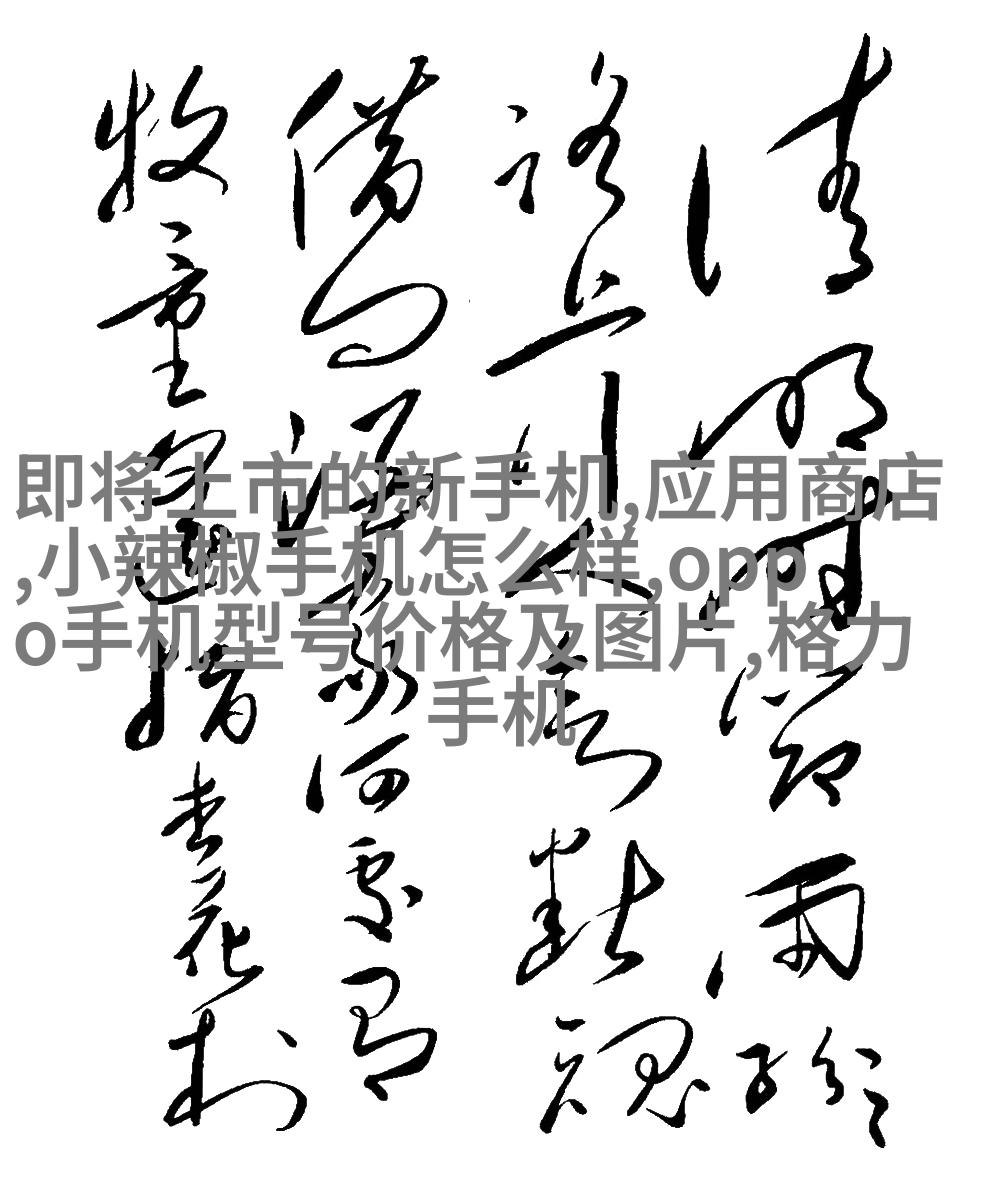 清明時節雨紛紛
路上行人欲斷魂
借問酒家何處有
牧童遙指杏花村
即将上市的新手机,应用商店
,小辣椒手机怎么样,opp
o手机型号价格及图片,格力
手机